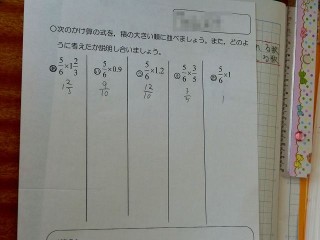 ○次のかけ算の式を、積の大きい順に並べましょう。また、どのよ
うに考えたか説明し合いましょう。
5/6×1 2/3
5/6×0.9
5/6×1.2
5/6×3/5
5/6×1
1 2/3
9/10
12/10
3/5
1